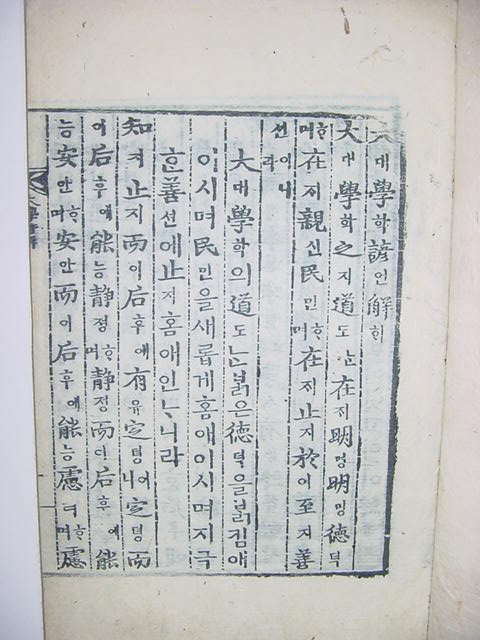 大대學학諺언解ᄒᆡ
大대學학之지道도ᄂᆞᆫ在ᄌᆡ明명明명德덕
ᄒᆞ며在ᄌᆡ親신民민ᄒᆞ며在ᄌᆡ止지於어至지善
션이니라
大대學학의道도ᄂᆞᆫ붉은德덕을붉김애
이시며民민을새롭게홈애이시며지극
ᄒᆞᆫ善션에止지홈애인ᄂᆞ니라
知지止지而이后후에有유定뎡이니定뎡而
이后후에能능静정ᄒᆞ며静정而이后후에能
능安안ᄒᆞ며安안而이后후에能능慮려ᄒᆞ며慮